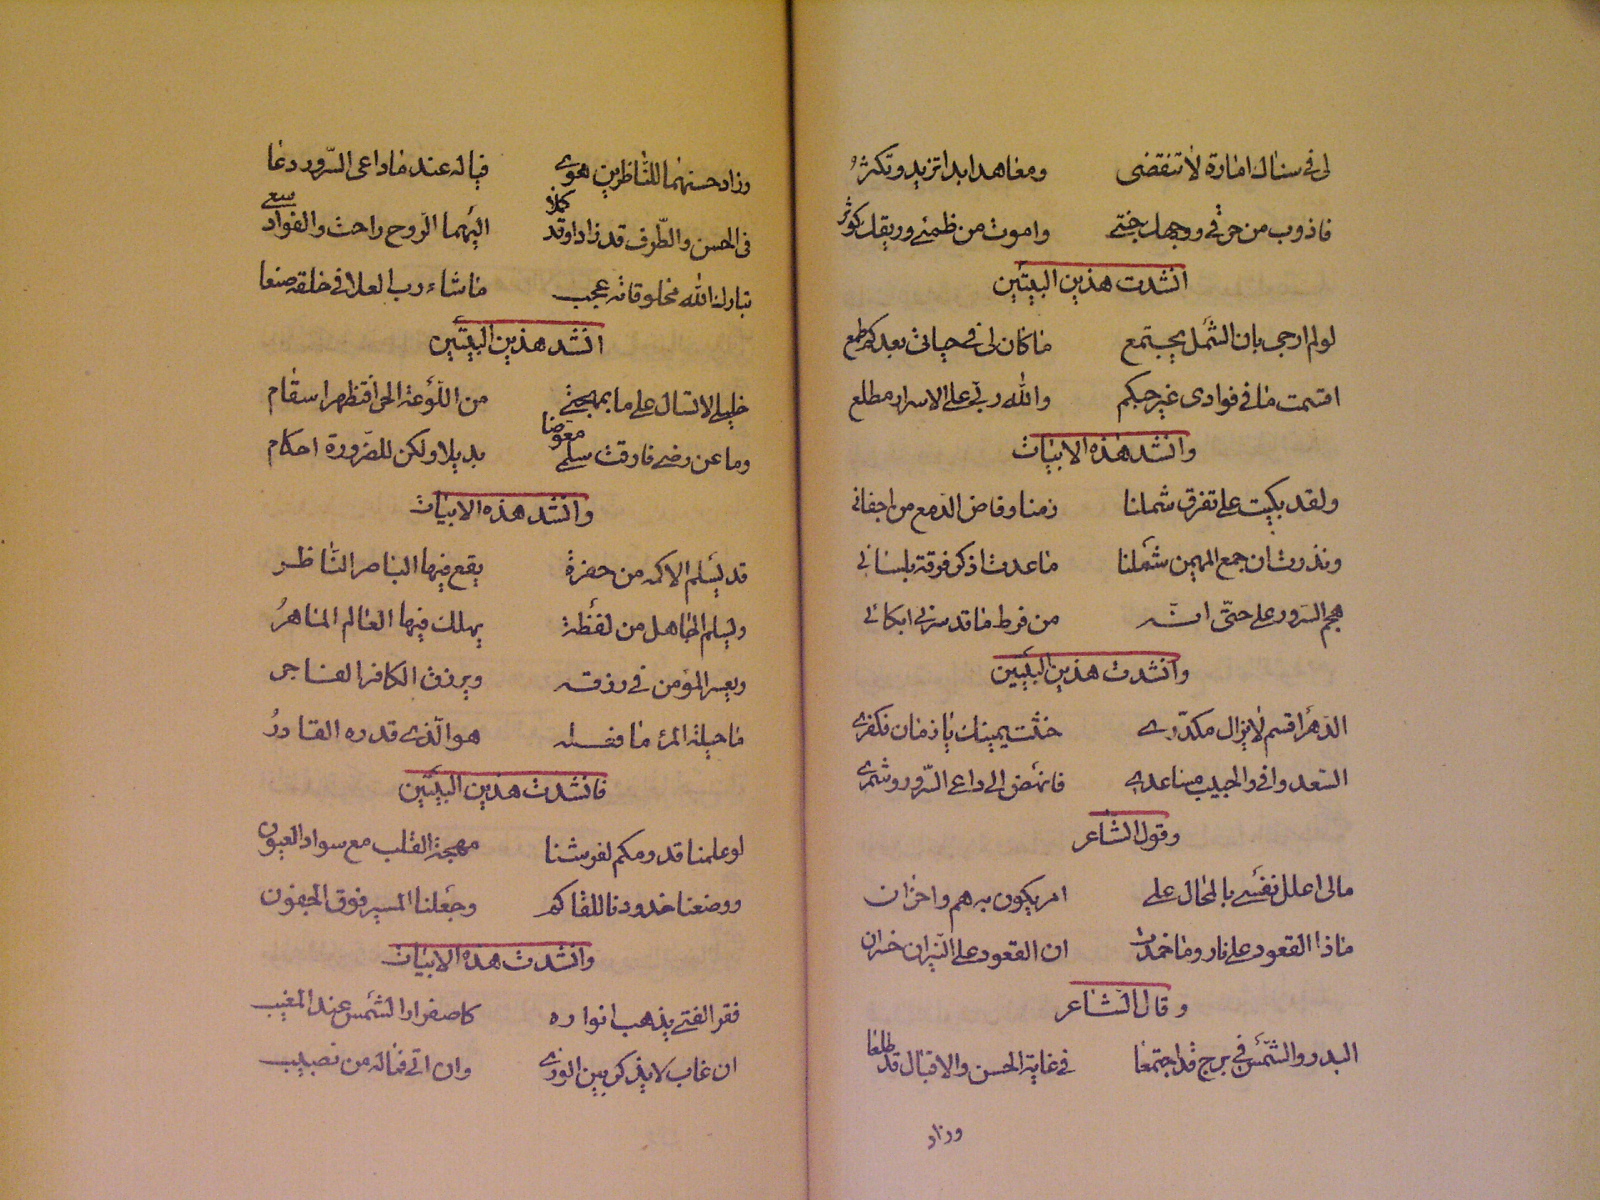 لى فى سناك امارة لا تنقضى ومعاهد ابدا تزيد وتكثر
فاذوب من حرقى ووجهك جنتى واموت من ظمئى وريقك كوثر
انشدت هذين البيتين
لو لم ارجى بان الشمل يجتمع ما كان لى فى حياتى بعدكم طمع
اقسمت ما فى فوادى غير حبكم والله ربى على الاسرار مطلع
وانشد هذه الابيات
ولقد بكيت على تفرق شملنا زمنا وفاض الدمع من اجفانى
ونذرت ان جمع المهيمن شملنا ما عدت اذكر فرقة بلسانى
هجم السرور على حتى انه من فرط ما قد سرنى ابكانى
وانشدت هذين البيتين
الدهر اقسم لا يزال مكدرى حنثت يمينك يا زمان فكفرى
السعد وافى والحبيب مساعدى فانهض الى داعى السرور وشمرى
وقول الشاعر
مالى اعلل نفسى بالمحال على امر يكون به هم واحزان
ماذا القعود على نار وما خمدت ان القعود على النيران خسران
وقال الشاعر
البدر والشمس فى برج قد اجتمعا فى غاية الحسن والاقبال قد طلعا
وزاد
وزاد حسنهما للناظرين هوى فياله عند ما داعى السرور دعا
فى الحسن والظرف قد زادا وقد كملا اليهما الروح راحت والفواد سعى
تبارك الله مخلوقاته عجب ما شاء رب العلا فى خلقه صنعا
انشد هذين البيتين
خليلى لا تسال على ما بمهجتى من اللوعة الحرا فتظهر اسقام
وما عن رضى فارقت سلمى معوضا بديلا ولكن للضرورة احكام
وانشد هذه الابيات
قد يسلم الاكمه من حفرة يقع فيها الباصر الناظر
ويسلم الجاهل من لفظة يهلك فيها العالم الماهر
ويعسر المؤمن فى رزقه ويرزق الكافر الفاجر
ما حيلة المرء ما فعله هو الذى قدره القادر
فانشدت هذين البيتين
لو علمنا قدومكم لفرشنا مهجة القلب مع سواد العيون
ووضعنا خدودنا للقاكم وجعلنا المسير فوق الجفون
وانشدت هذه الابيات
فقر الفتى يذهب انواره كاصفرار الشمس عند المغيب
ان غاب لا يذكر بين الورى وان اتى فماله من نصيب